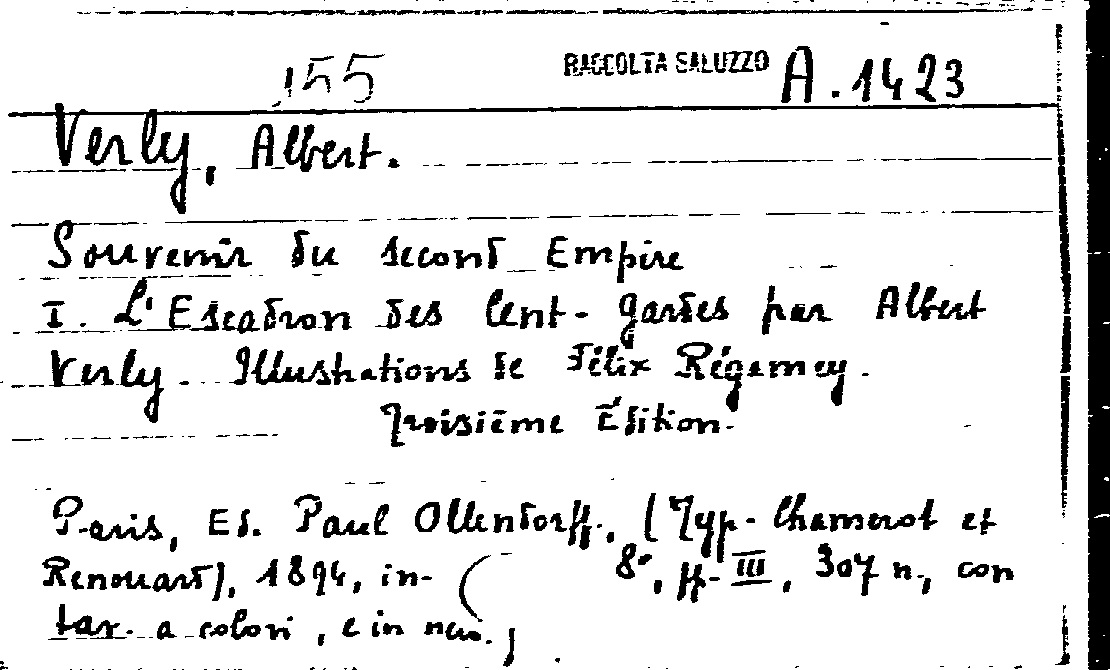 155 RACCOLTA SALUZZO A. 1423
Verly, Albert.
Souvenir du second Empire
I. L'Escadron des Cent-gardes par Albert
Verly. Illustrations de Félix Régamey.
Troisième Édition.
Paris, Ed. Paul Ollendorff, (Typ. Chamerot et
Renouard), 1894, in-8°, pp. III, 307 n., con
tav. a colori, e in nero.